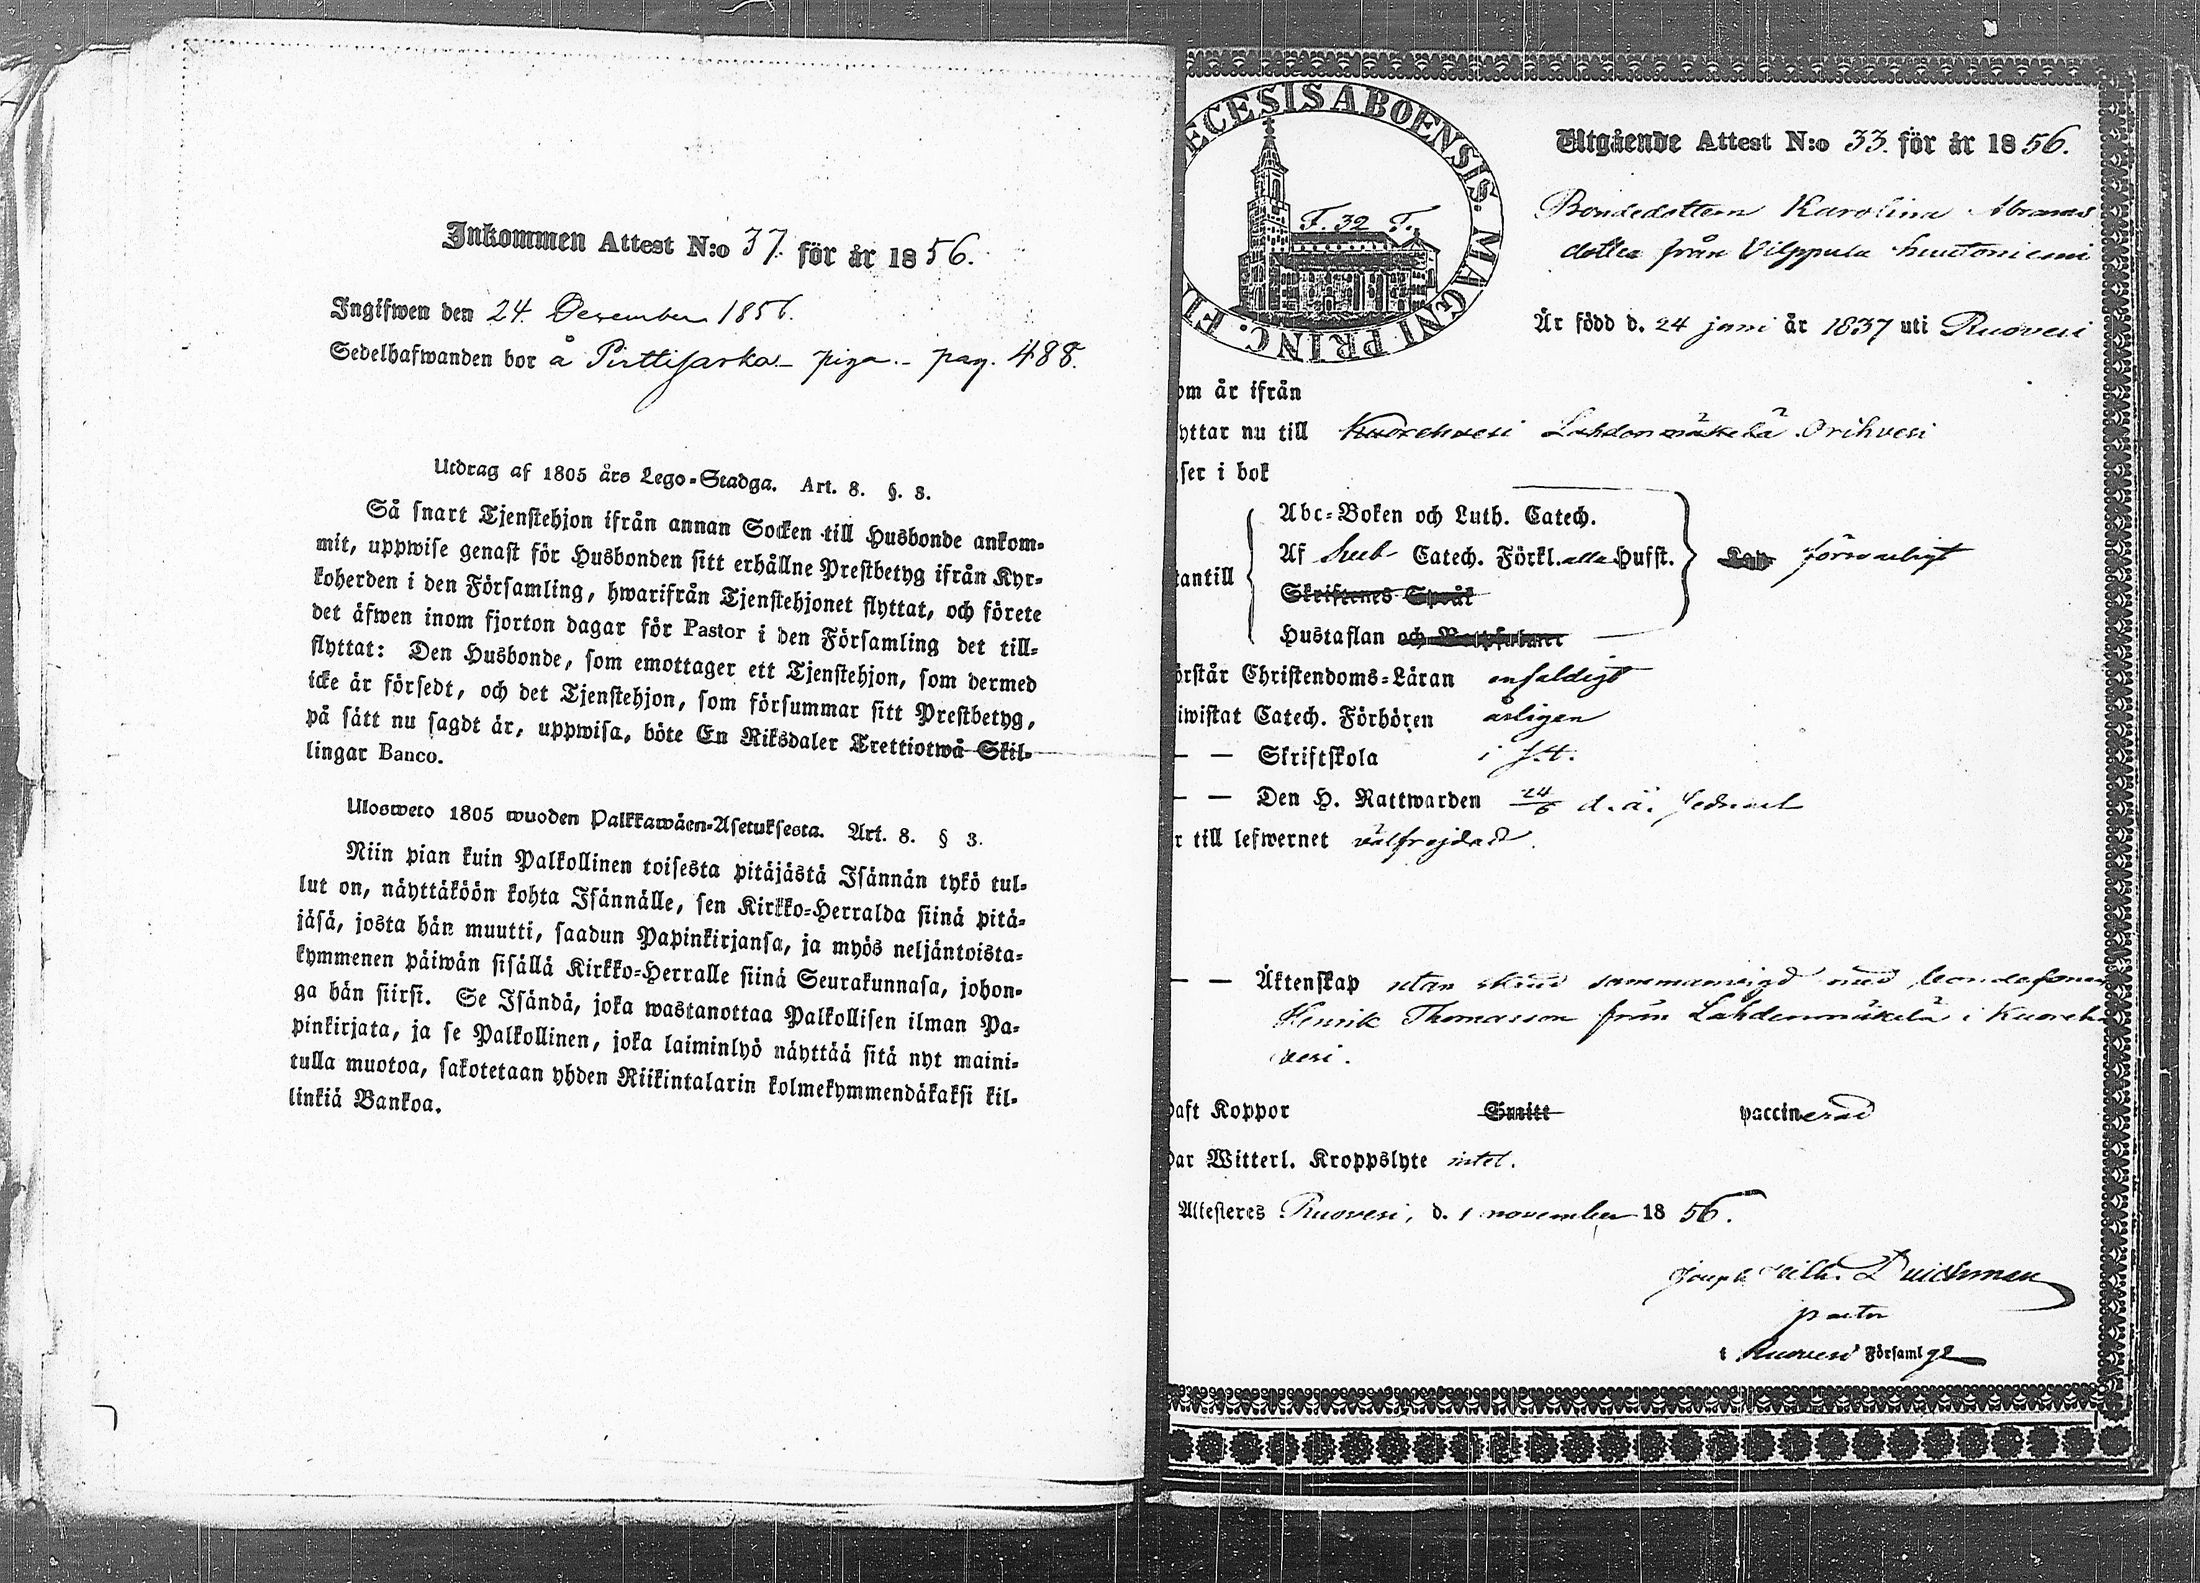 Inkommen Attest N:o 37. för år 1856.
Ingifwen den 24 December 1856.
Sedelhafwanden bor å Pirttijarka - piga - pag. 488.
Utdrag af 1805 års Lego-Stadga. Art. 8. §. 3.
Så snart Tjenstehjon ifrån annan Socken till Husbonde ankom-
mit, uppwise genast för Husbonden sitt erhållne Prestbetyg ifrån Kyr-
koherden i den Församling, hwarifrån Tjenstehjonet flyttat, och förete
det äfwen inom fjorton dagar för Pastor i den Församling det till-
flyttat: Den Husbonde, som emottager ett Tjenstehjon, som dermed
icke är försedt, och det Tjenstehjon, som försummar sitt Prestbetyg,
på sätt nu sagdt är, uppwisa, böte En Riksdaler Trettiotwå Skil-
lingar Banco.
Ulosweto 1805 wuoden Palkkawäen-Asetuksesta. Art. 8. § 3.
Niin pian kuin Palkollinen toisesta pitäjästä Isännän tykö tul-
lut on, näyttäköön kohta Isännälle, sen Kirkko-Herralda siinä pitä-
jäsä, josta hän muutti, saadun Papinkirjansa, ja myös neljäntoista-
kymmenen päiwän sisällä Kirkko-Herralle siinä Seurakunnasa, johon-
ga hän siirsi. Se Isändä, joka wastanottaa Palkollisen ilman Pa-
pinkirjata, ja se Palkollinen, joka laiminlyö näyttää sitä nyt maini-
tulla muotoa, sakotetaan yhden Riikintalarin kolmekymmendäkaksi kil-
linkiä Bankoa.
ECESIS ABOENSIS. MAGNI PRINC. FI
F. 32 T.
Utgående Attest N:o 33. för år 1856.
Bondedottern Karolina Abrams
dotter från Vilppula
Är född d. 24 juni år 1837 uti Ruovesi
om är ifrån
yttar nu till Kuorehvesi Lahdenmäkelä Orihvesi
ser i bok
Abc-Boken och Luth. Catech.
Af Catech. Förkl. alla Hufst.
försvarligt
tantill
Skriftenes Språk
Hustaflan och
örstår Christendoms-Läran enfaldigt
iwistat Catech. Förhören årligen
— — Skriftskola i
— — Den H. Nattwarden 24/6 d. å. sednast
r till lefwernet välfrejdad.
— — Äktenskap utan sammanvigd med bondesonen
Henrik Thomasson från Lahdenmäkelä i Kuoreh
vesi.
haft Koppor Smitt vaccinerad
har Witterl. Kroppslyte intet.
Attesteres Ruovesi, d. 1 november 1856.
Joseph Wilh. Durchman
pastor
i Ruovesi Församlge